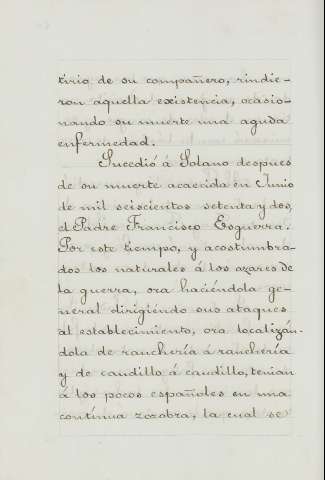 tirio de su compañero, rindie-
ron aquella existencia, ocasio-
nando su muerte una aguda
enfermedad.
Sucedió á Solano despues
de su muerte acaecida en Junio
de mil seiscientos setenta y dos,
el Padre Francisco Esguerra.
Por este tiempo, y acostumbra-
dos los naturales á los azares de
la guerra, ora haciéndola ge-
neral dirigiendo sus ataques
al establecimiento, ora localizán-
dola de ranchería á ranchería
y de caudillo á caudillo, tenian
á los pocos españoles en una
contínua zozobra, la cual se